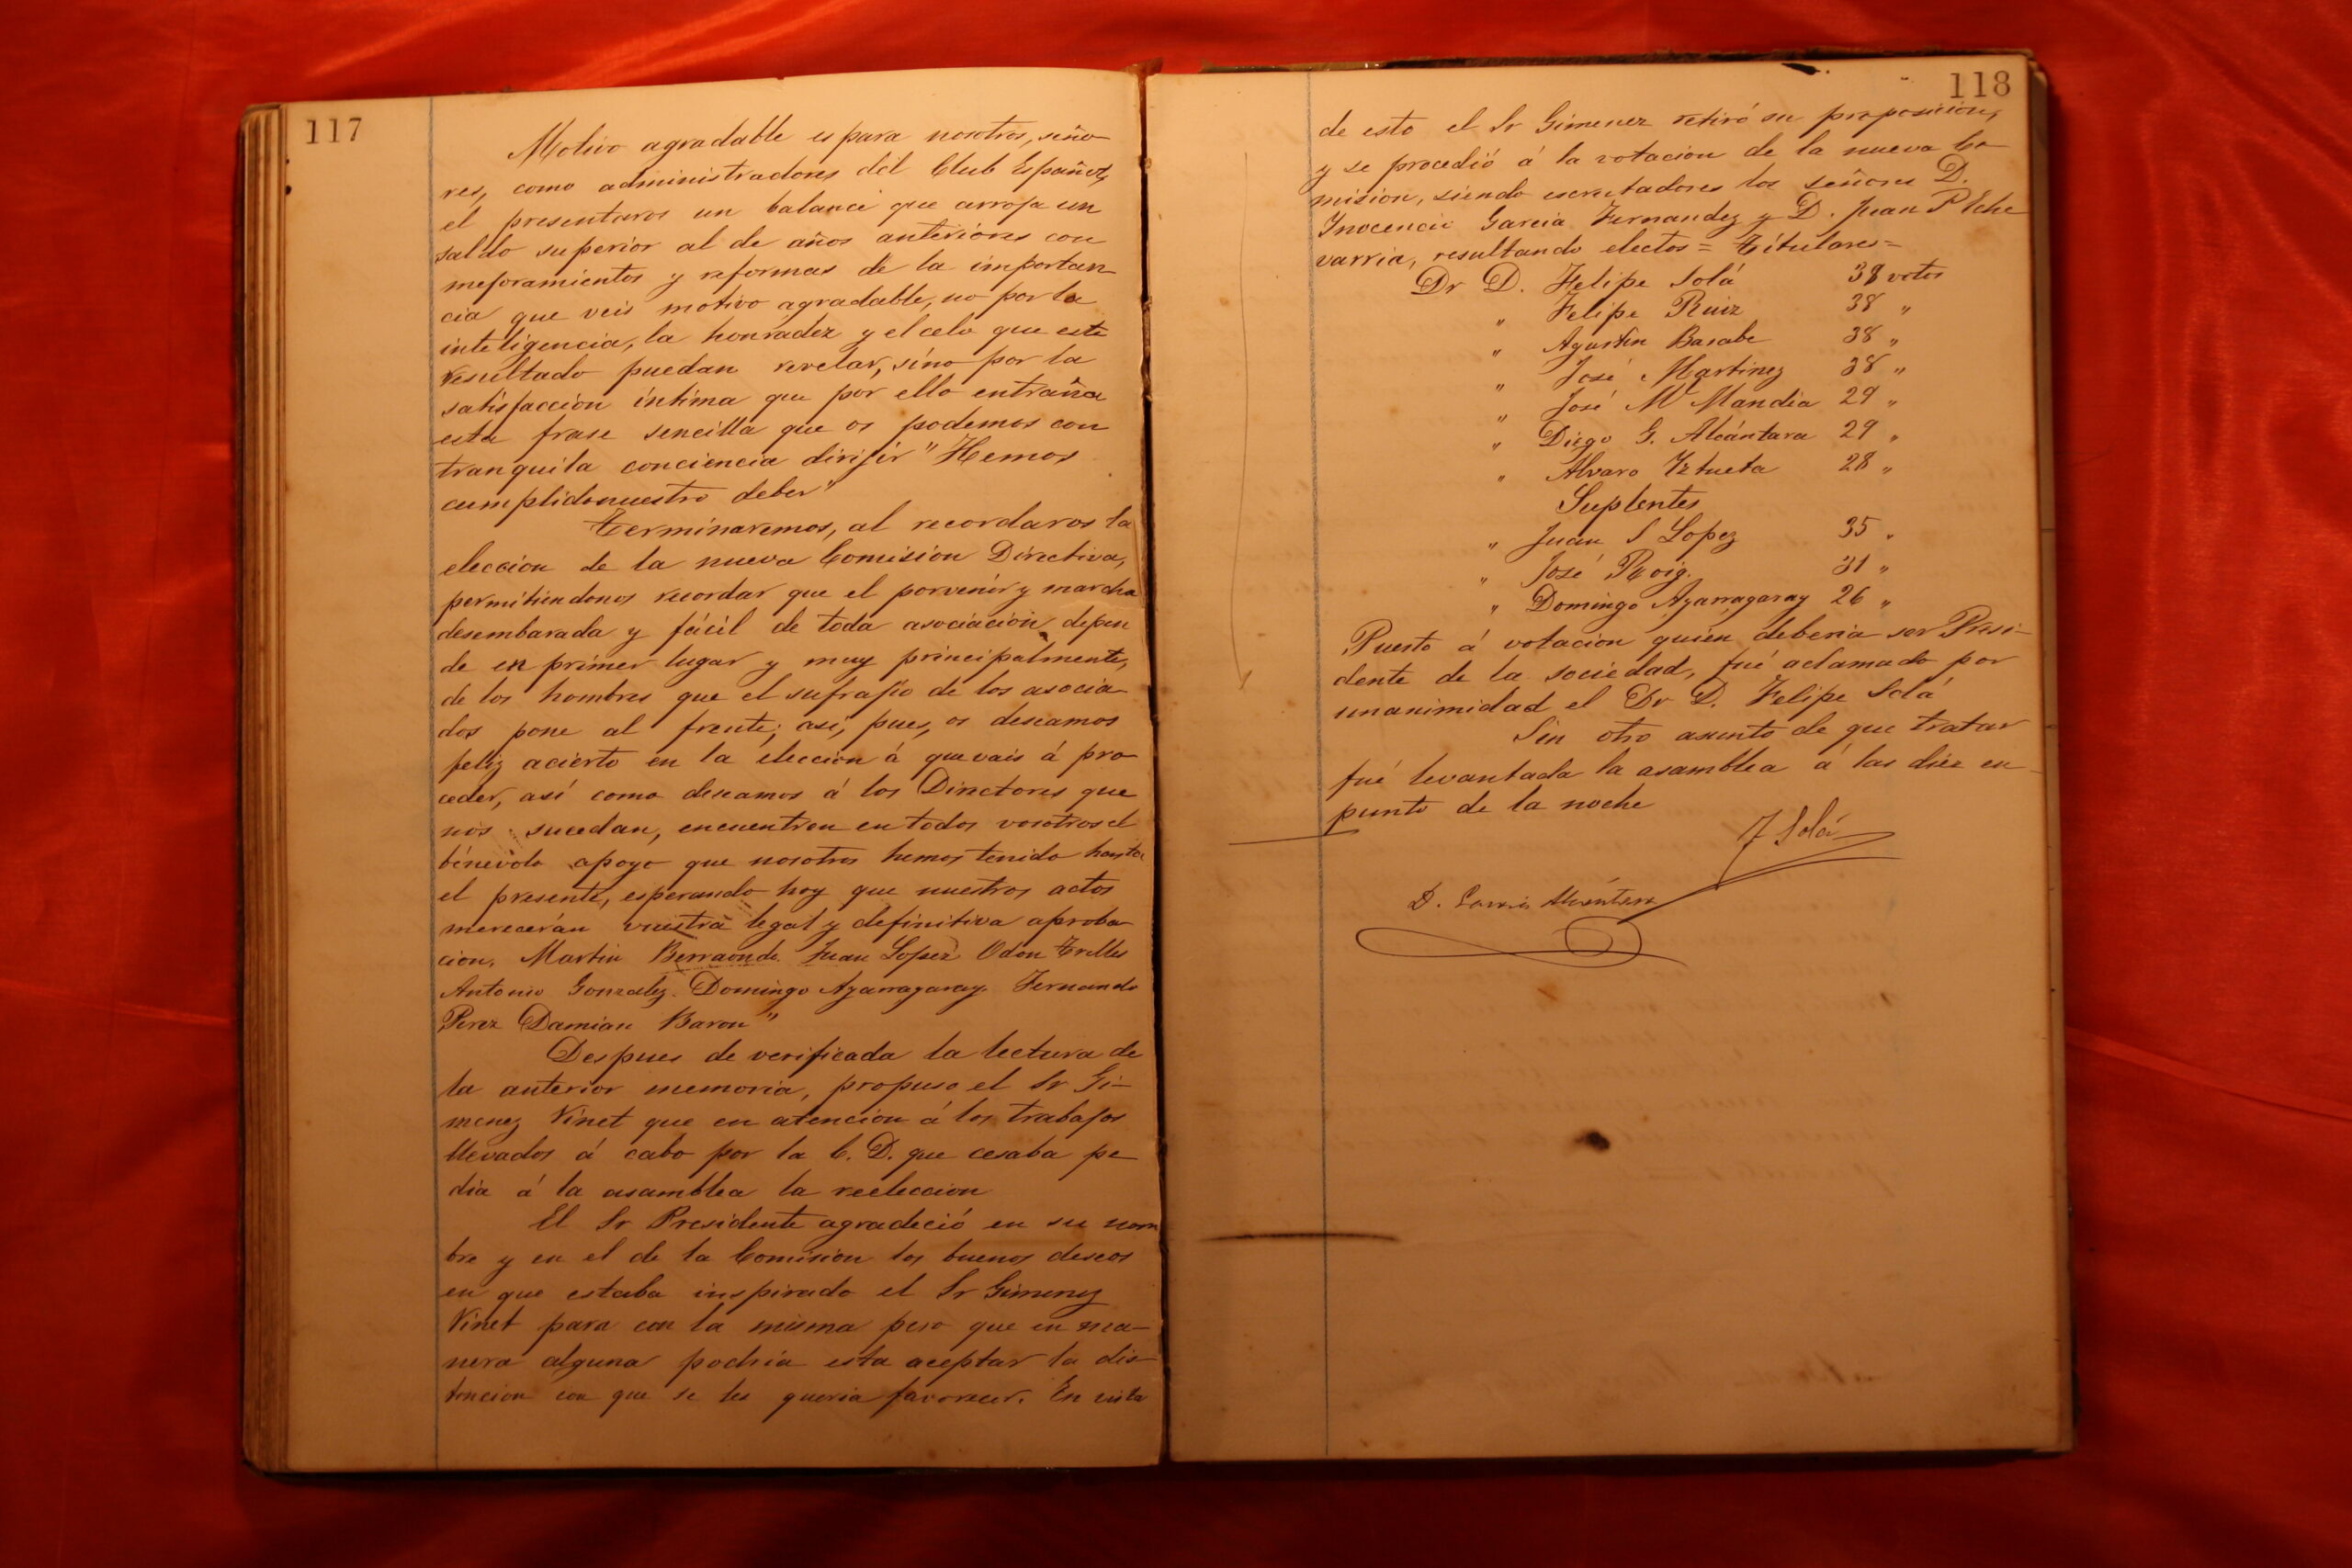 117
Motivo agradable es para nosotros, seño
res, como administradores del Club Español,
el presentaros un balance que arroja un
saldo superior al de años anteriores con
mejoramientos y reformas de la importan
cia que veis motivo agradable, no por la
inteligencia, la honradez y el celo que este
resultado puedan revelar, sino por la
satisfaccion íntima que por ello entraña
esta frase sencilla que os podemos con
tranquila conciencia dirijir "Hemos
cumplido nuestro deber"
Terminaremos, al recordaros la
eleccion de la nueva Comision Directiva,
permitiendonos recordar que el porvenir y marcha
desembarada y fácil de toda asociación depen
de en primer lugar y muy principalmente,
de los hombres que el sufrajio de los asocia
dos pone al frente; así, pues, os deseamos
feliz acierto en la eleccion á que vais á pro
ceder, así como deseamos á los Directores que
nos sucedan, encuentren en todos vosotros el
bénevolo apoyo que nosotros hemos tenido hasta
el presente, esperando hoy que nuestros actos
merecerán vuestra legal y definitiva aproba
cion. Martin Berraondo Juan Lopez Odon Trelles
Antonio Gonzalez. Domingo Azarragaray. Fernando
Perez Damian Baron"
Despues de verificada la lectura de
la anterior memoria, propuso el Sr Gi-
menez Vinet que en atencion á los trabajos
llevados á cabo por la C. D. que cesaba pe
dia á la asamblea la reeleccion
El Sr Presidente agradeció en su nom
bre y en el de la Comision los buenos deseos
en que estaba inspirado el Sr Gimenez
Vinet para con la misma pero que en ma-
nera alguna podria esta aceptar la dis-
tincion con que se les queria favorecer. En vista
118
de esto el Sr Gimenez retiró su proposicion,
y se procedió á la votacion de la nueva Co-
mision, siendo escrutadores los señores D.
Inocencio Garcia Fernandez y D. Juan P Eche
varria, resultando electos = Titulares =
Dr D. Felipe Solá 38 votos
" Felipe Ruiz 38 "
" Agustin Basabe 38 "
" José Martinez 38 "
" José M Mandia 29 "
" Diego G. Alcántara 29 "
" Alvaro Iztueta 28 "
Suplentes
" Juan S Lopez 35 "
" José Roig. 31 "
" Domingo Azarragaray 26 "
Puesto á votacion quien deberia ser Presi-
dente de la sociedad, fué aclamado por
unanimidad el Dr D. Felipe Solá
Sin otro asunto de que tratar
fué levantada la asamblea á las diez en
punto de la noche
F Solá
D. Garcia Alcántara